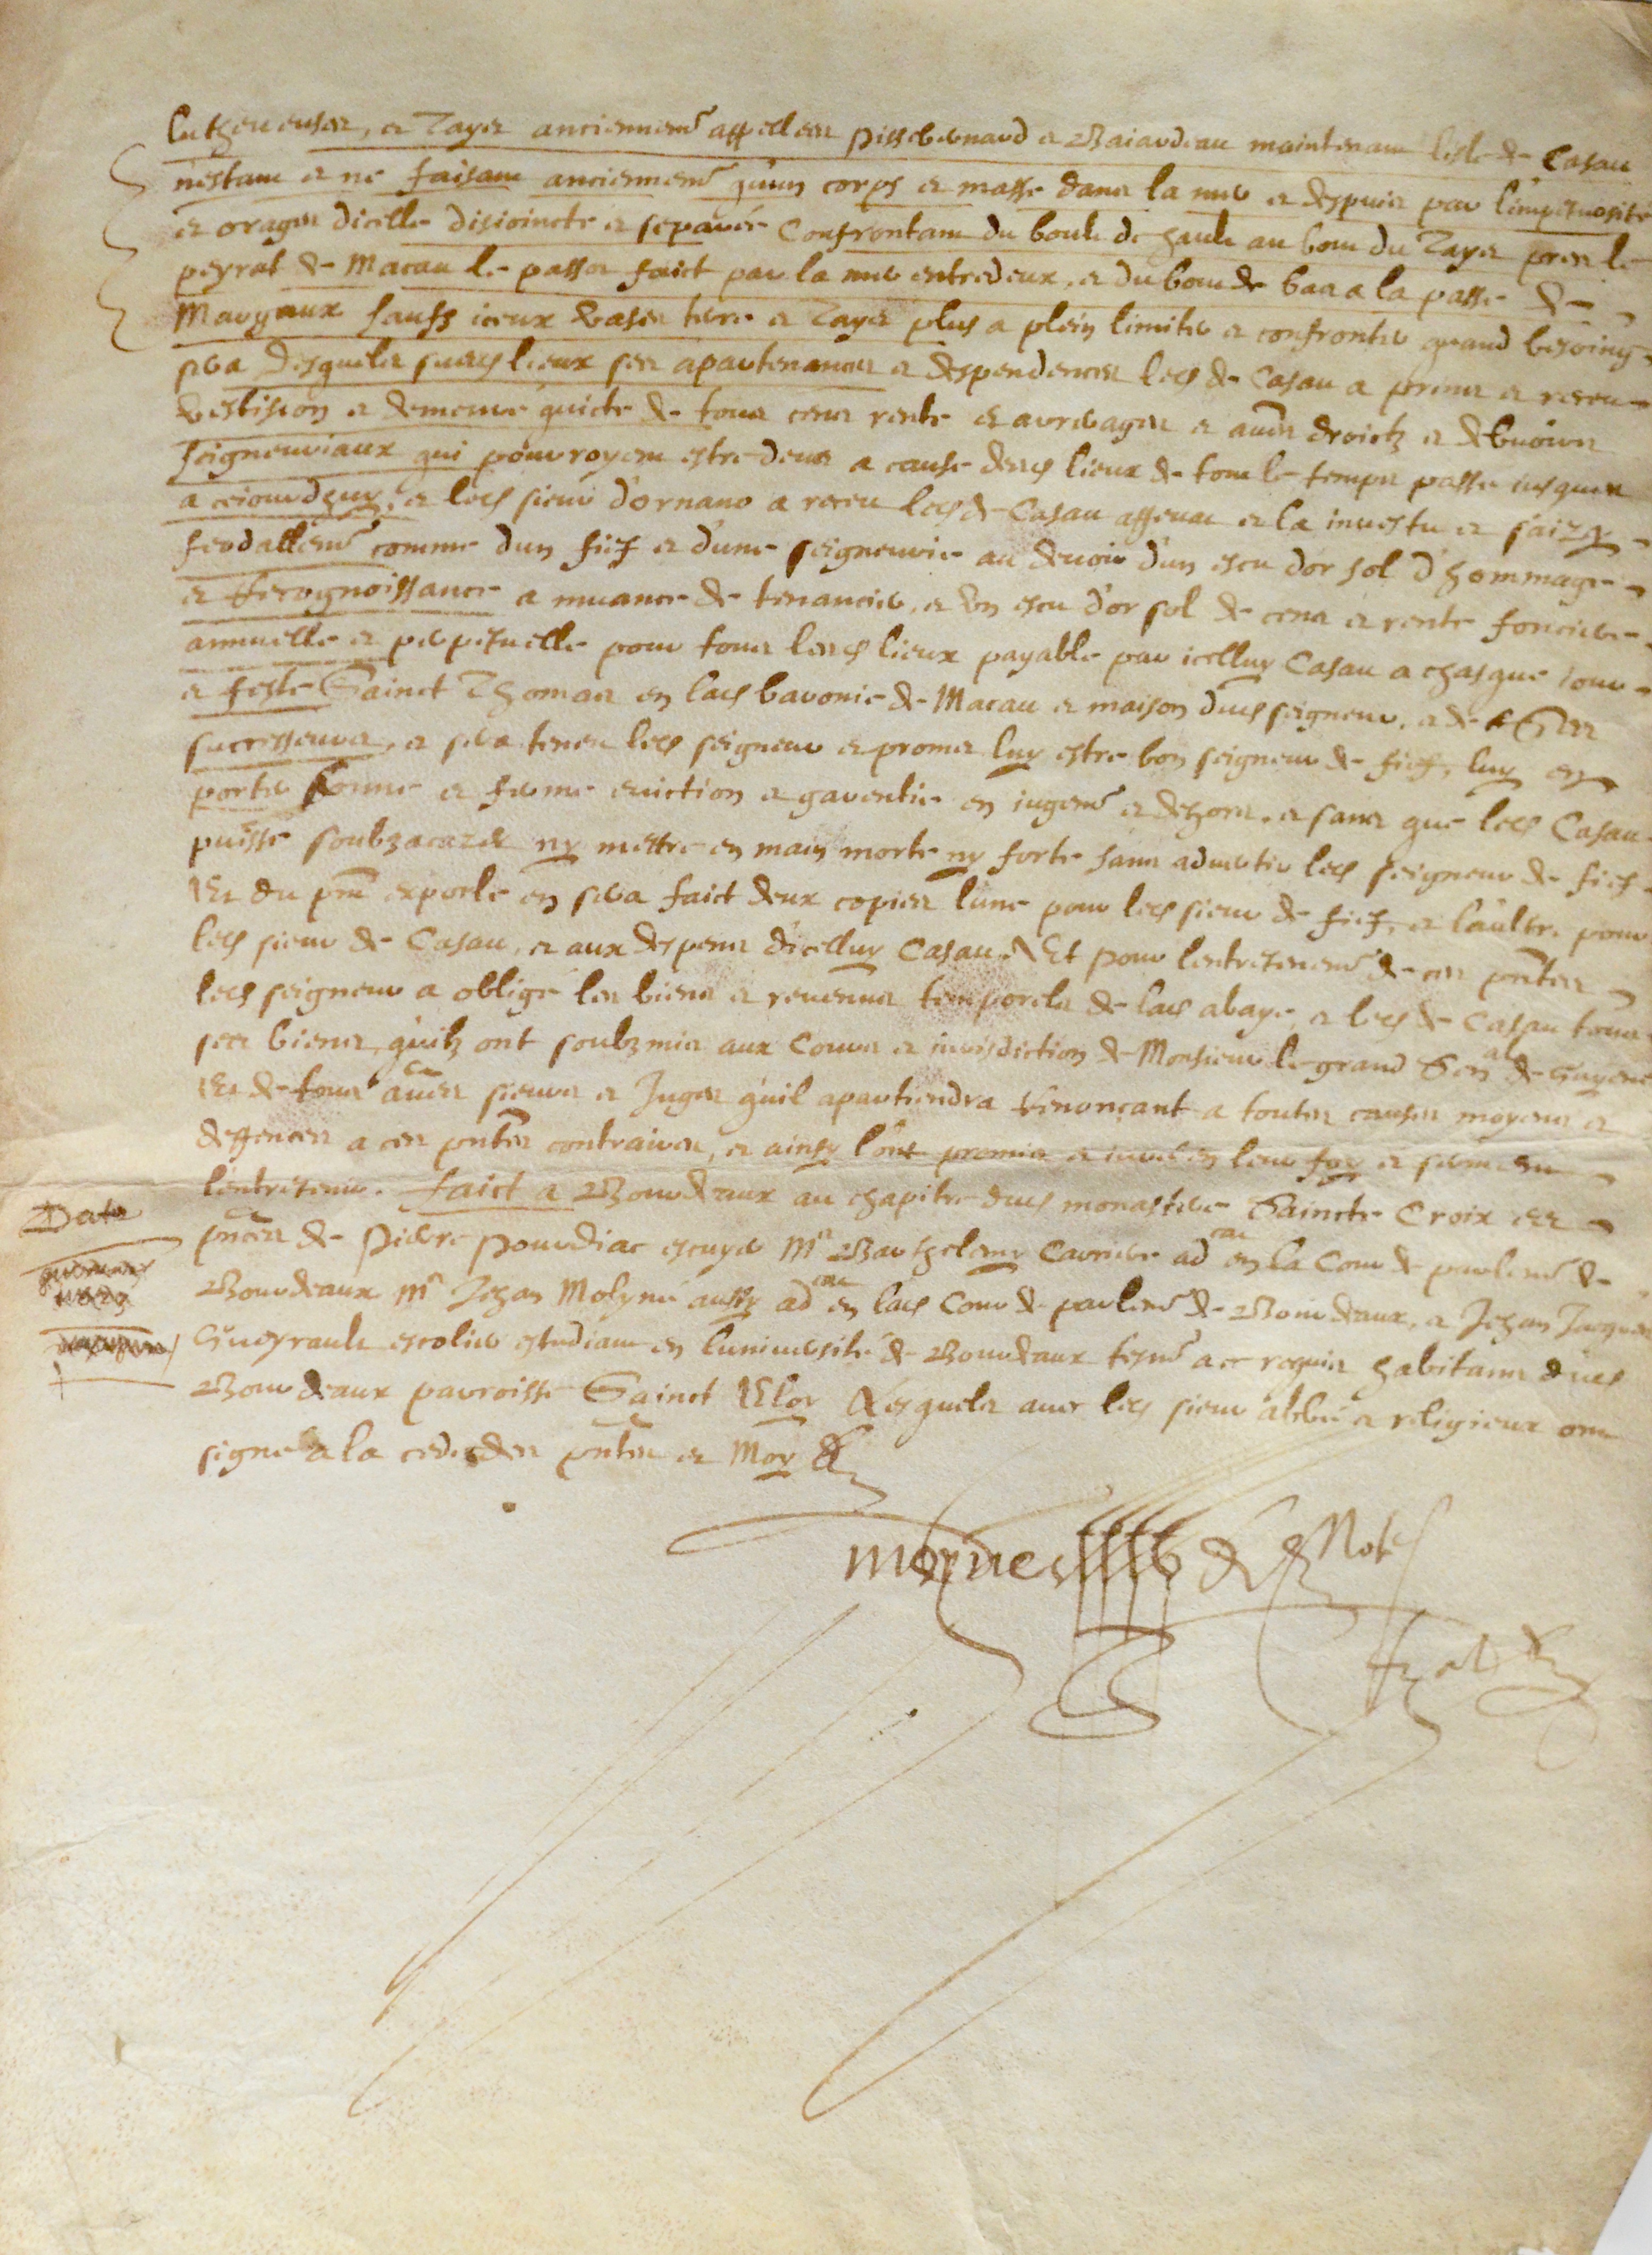 et Tayes anciennemt appellees Pissebernard et Baiardeau maintenant lisle de Casau
nestant et ne faisant anciennemt quun corps et masse dans la mer et despuis par limpetuosité
et orages dicelle disioincte et separée Confrontant du bout de hault au bout du Tayes pres le
peyrat de Macau le passer faict par la mer entredeux, et du bout de bas a la passe de
Mauyaux saufz iceux vases terre et Tayes plus a plein limiter et confronter quand besoing
sera Desquels susds lieux ses apartenances et despendences leds de Casau a prins et receu
vestision et demeure quicte de tous cens rente et arrerages et aues droictz et debuoirs
seigneuriaux qui pouvroyent estre deus a cause desds lieux de tout le temps passe iusques
a ceiourdhuy, et leds sieur d'ornano a receu leds de Casau affeuat et la inuestu et saizy
feodallemt comme dun fief et dune seigneurie au devoir d'un escu dor sol d'hommage
et recognoissance a muance de tenancier, et un escu dor sol de cens et rente fonciere
annuelle et perpetuelle pour tous lesds lieux payable par icelluy Casau a chasque iour
et feste Sainct Thomas en lads baronie de Macau et maison duds seigneur, et de ses
successeurs, et sera tenu leds seigneur et promis luy estre bon seigneur de fief, luy en
porter bonne et ferme euiction et garentie en iugemt et dehors, et sans que leds Casau
puisse soubzacazer ny mettre en main morte ny forte sans aduertir leds seigneur de fief
Et du pnt exporle en sera faict deux copies lune pour leds sieur de fief, et laultre pour
leds sieur de Casau, et aux despens dicelluy Casau. Et pour lentretenemt de ces pntes
leds seigneur a obligé les biens et reuenus temporels de lads abaye, et leds de Casau tous
ses biens, quilz ont soubzmis aux Cours et iurisdiction de Monsieur le grand Senal de Guyene
Et de tous aues sieurs et Juges quil apartiendra Renonçant a toutes causes moyens et
deffences a ces pntes contraires, et ainsy lont promis et iuré en leur foy et sermant
lentretenir. faict a Bourdeaux au chapitre duds monastere Saincte Croix es
pnces de Pierre Pourdiac escuyer Mr Barthelemy Carriere adcat en la Cour de parlemt de
Bourdeaux Mr Jehan Molynié aussy adcat en lads Cour de parlemt de Bourdeaux, et Jehan Jacques
Gueyrault escolier estudiant en luniuersité de Bourdeaux tesmt ace requis habitans duds
Bourdeaux parroisse Sainct Eloy Lesquels auec leds sieur abbé et religieux ont
signe a la cede des pntes et Moy
Date